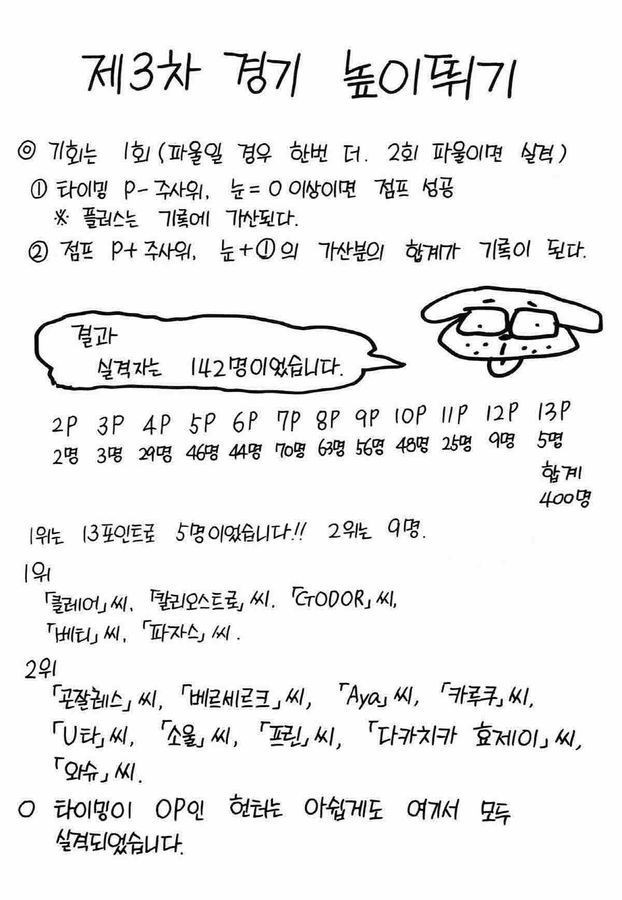 제3차 경기 높이뛰기
◎ 기회는 1회 (파울일 경우 한번 더. 2회 파울이면 실격)
① 타이밍 P-주사위, 눈=0 이상이면 점프 성공
※ 플러스는 기록에 가산된다.
② 점프 P+주사위, 눈+①의 가산분의 합계가 기록이 된다.
결과
실격자는 142명이었습니다.
2P 3P 4P 5P 6P 7P 8P 9P 10P 11P 12P 13P
2명 3명 29명 46명 44명 70명 63명 56명 48명 25명 9명 5명
합계
400명
1위는 13포인트로 5명이었습니다!! 2위는 9명.
1위
「클레어」씨, 「칼리오스트로」씨. 「GODOR」씨,
「베티」씨, 「파자스」씨.
2위
「곤잘레스」씨, 「베르세르크」씨, 「Aya」씨, 「카루쿠」씨,
「U타」씨, 「소울」씨, 「프린」씨, 「다카치카 효제이」씨,
「와슈」씨.
○ 타이밍이 0P인 헌터는 아쉽게도 여기서 모두
실격되었습니다.